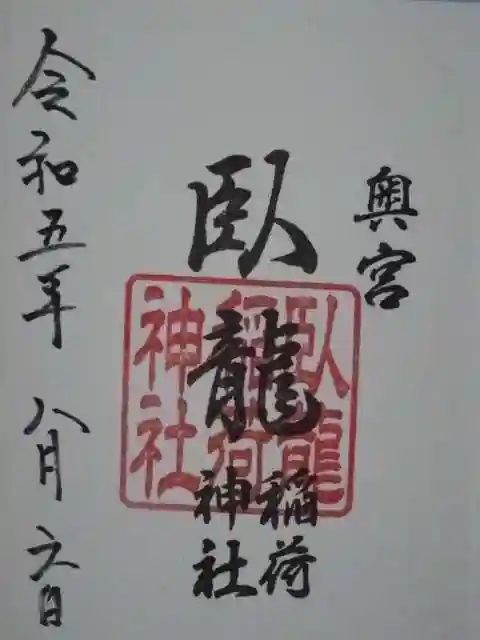 奥宮
臥龍
稲荷
神社
臥龍
稲荷
神社
令和五年八月六日